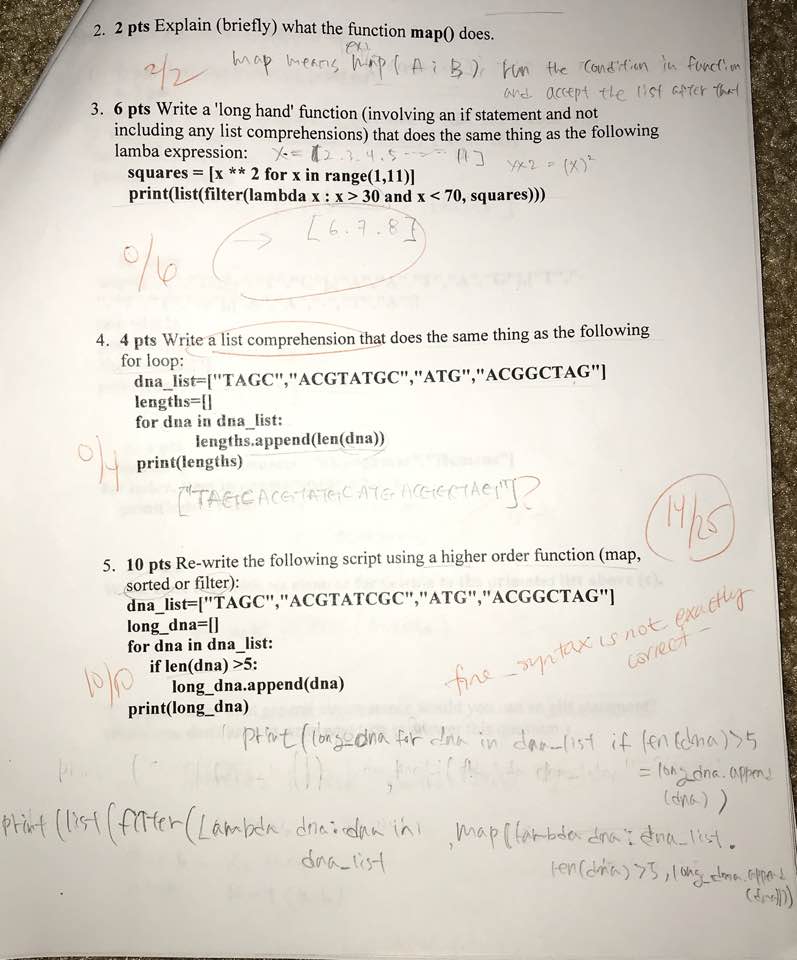 2. 2 pts Explain (briefly) what the function map() does.
2/2
ex)
map means map(A ; B), run the condition in function
and accept the list after that
3. 6 pts Write a 'long hand' function (involving an if statement and not
including any list comprehensions) that does the same thing as the following
lamba expression:
squares = [x ** 2 for x in range(1,11)]
print(list(filter(lambda x : x > 30 and x < 70, squares)))
→ [6.7.8]
0/6
4. 4 pts Write a list comprehension that does the same thing as the following
for loop:
dna_list=["TAGC","ACGTATGC","ATG","ACGGCTAG"]
lengths=[]
for dna in dna_list:
lengths.append(len(dna))
print(lengths)
0/4
14/25
5. 10 pts Re-write the following script using a higher order function (map,
sorted or filter):
dna_list=["TAGC","ACGTATCGC","ATG","ACGGCTAG"]
long_dna=[]
for dna in dna_list:
if len(dna) >5:
long_dna.append(dna)
print(long_dna)
10/10
fine - syntax is not exactly
correct -
print(long_dna for dna in dna_list if len(dna)>5
= long_dna.append
(dna))
print(list(filter(Lambda dna: dna in
dna_list
,map(lambda dna: dna_list.
len(dna)>5, long_dna.append
(dna))))